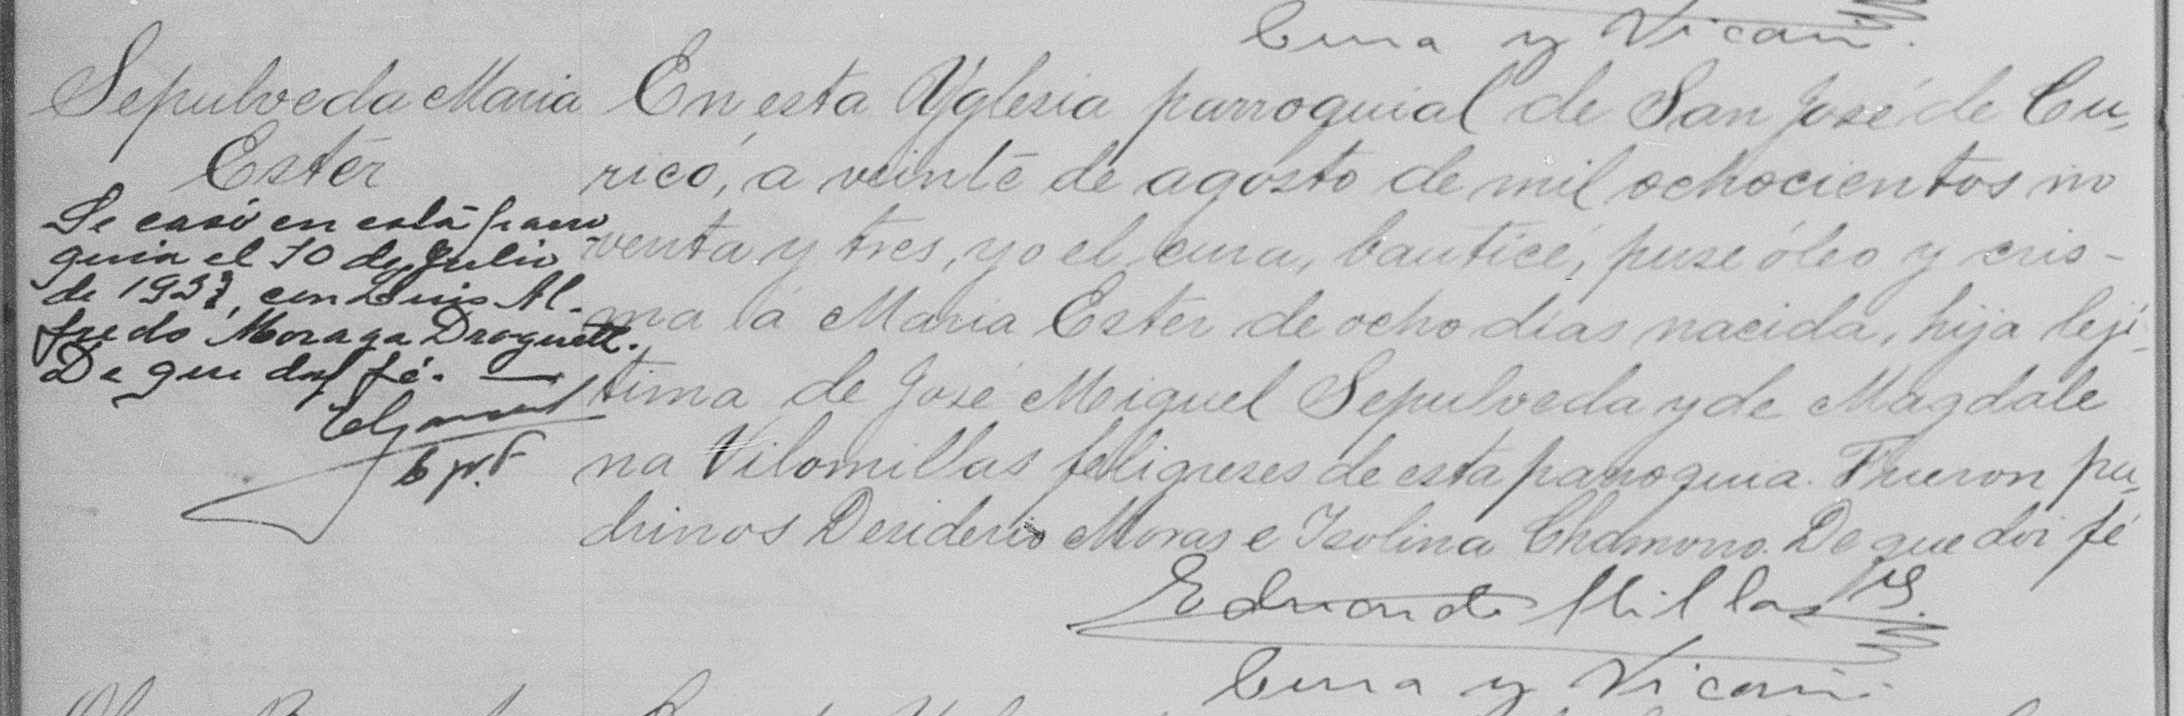 Cura y Vicario.
Sepulveda Maria
Ester
Se casó en esta parro
quia el 30 de Julio
de 193 , con Luis Al-
fredo Moraga Droguett.
De que doy fé. —
C. p.
En esta Yglesia parroquial de San José de Cu-
ricó, a veinte de agosto de mil ochocientos no
venta y tres, yo el cura, bauticé, puse óleo y cris-
ma á Maria Ester de ocho dias nacida, hija leji-
tima de José Meiguel Sepulveda y de Magdale
na Vilomillas feligreses de esta parroquia. Fueron pa-
drinos Desiderio Moras e Isolina Chamorro. De que doi fé
Eduardo Millas
Cura y Vicario.